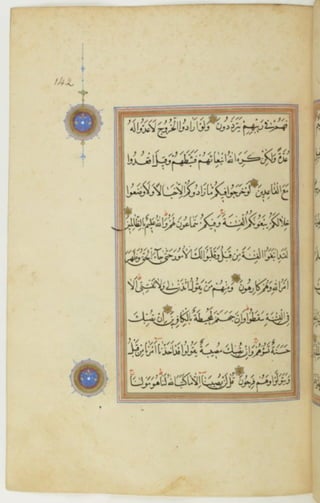 ١٤٢
فَهُمْ فِي رَيْبِهِمْ يَتَرَدَّدُونَ وَلَوْ أَرَادُوا الْخُرُوجَ لَأَعَدُّوا لَهُ
عُدَّةً وَلَكِنْ كَرِهَ اللَّهُ انْبِعَاثَهُمْ فَثَبَّطَهُمْ وَقِيلَ اقْعُدُوا
مَعَ الْقَاعِدِينَ لَوْ خَرَجُوا فِيكُمْ مَا زَادُوكُمْ إِلَّا خَبَالًا وَلَأَوْضَعُوا
خِلَالَكُمْ يَبْغُونَكُمُ الْفِتْنَةَ وَفِيكُمْ سَمَّاعُونَ لَهُمْ وَاللَّهُ عَلِيمٌ بِالظَّالِمِينَ
لَقَدِ ابْتَغَوُا الْفِتْنَةَ مِنْ قَبْلُ وَقَلَّبُوا لَكَ الْأُمُورَ حَتَّى جَاءَ الْحَقُّ وَظَهَرَ
أَمْرُ اللَّهِ وَهُمْ كَارِهُونَ وَمِنْهُمْ مَنْ يَقُولُ ائْذَنْ لِي وَلَا تَفْتِنِّي أَلَا
فِي الْفِتْنَةِ سَقَطُوا وَإِنَّ جَهَنَّمَ لَمُحِيطَةٌ بِالْكَافِرِينَ إِنْ تُصِبْكَ
حَسَنَةٌ تَسُؤْهُمْ وَإِنْ تُصِبْكَ مُصِيبَةٌ يَقُولُوا قَدْ أَخَذْنَا أَمْرَنَا مِنْ قَبْلُ
وَيَتَوَلَّوْا وَهُمْ فَرِحُونَ قُلْ لَنْ يُصِيبَنَا إِلَّا مَا كَتَبَ اللَّهُ لَنَا هُوَ مَوْلَانَا